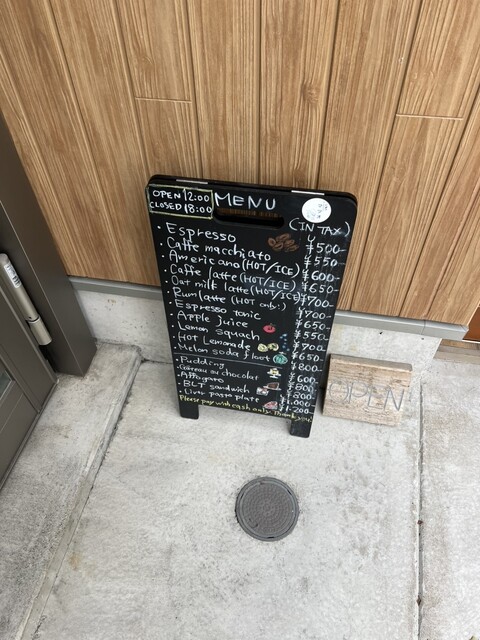 OPEN 12:00
CLOSED 18:00
MENU
(IN TAX)
・Espresso ¥500
・Caffe macchiato ¥550
・Americano (HOT/ICE) ¥600
・Caffe latte (HOT/ICE) ¥650
・Oat milk latte (HOT/ICE) ¥700
・Rum latte (HOT only:) ¥700
・Espresso tonic ¥650
・Apple juice ¥550
・Lemon squach
・HOT Lemonade ¥650
・Melon soda float ¥800
・Pudding ¥600
・Gateau au chocolat
・Affogato
・BLT sandwich ¥1,000
・Liver paste plate ¥1,200
Please pay with cash only. Thank you!
OPEN